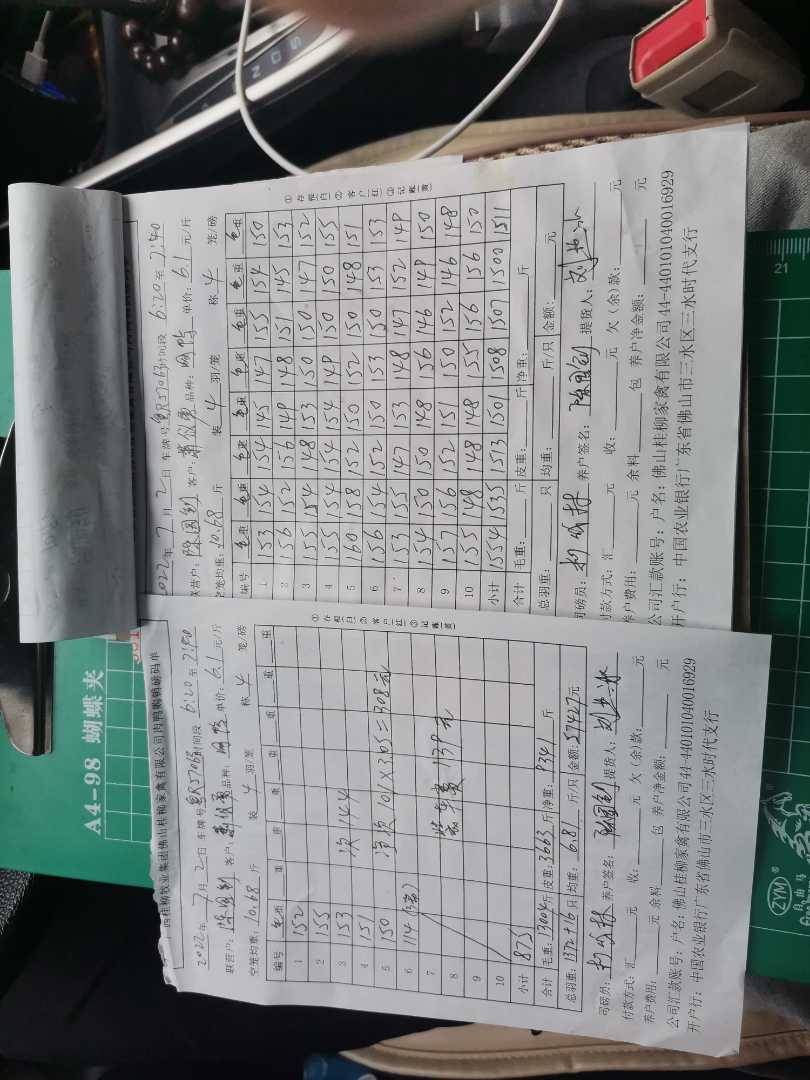 2022年 7月 2日 车牌号 粤R37063 时间段 6:20 至 7:40
联营户: 陈国钊 客户: 品种: 单价: 6.1 元/斤
空笼均重: 10.68 斤 装 4 羽/笼 称 4 笼/磅
编号 毛重 毛重 毛重 毛重 毛重 毛重 毛重 毛重
1 153 154 154 145 147 155 154 150
2 156 152 156 149 148 151 145 153
3 155 154 148 153 150 150 147 152
4 155 154 154 154 149 150 150 155
5 160 158 152 150 152 150 148 151
6 156 154 152 150 153 150 153 153
7 153 155 147 153 148 147 152 149
8 154 150 150 148 156 146 149 150
9 157 156 152 151 150 152 146 148
10 155 148 148 148 155 156 156 150
小计 1554 1535 1513 1501 1508 1507 1500 1511
合计 毛重: 斤 皮重: 斤 净重: 斤
总羽重: 只 均重: 斤/只 金额: 元
司磅员: 养户签名: 陈国钊 提货人:
付款方式: 汇 元 收: 元 欠(余)款: 元
养户费用: 元 余料 包 养户净金额: 元
公司汇款账号: 户名: 佛山桂柳家禽有限公司 44-440101040016929
开户行: 中国农业银行广东省佛山市三水区三水时代支行
①存根(白) ②客户(红) ③记账(黄)
西桂柳牧业集团佛山桂柳家禽有限公司肉鸭购销磅码单
2022年 7月 2日 车牌号 粤R37063 时间段 6:20 至 7:40
联营户: 陈国钊 客户: 品种: 单价: 6.1 元/斤
空笼均重: 10.68 斤 装 4 羽/笼 称 4 笼/磅
编号 毛重 重 重 重 重 重 重 重
1 152
2 155
3 153 次 144
4 151
5 150 净次 101×3.05=308元
6 114
7
8 装车费 1139元
9
10
小计 875
合计 毛重: 13004 斤 皮重: 3663 斤 净重: 9341 斤
总羽重: 1372+16 只 均重: 6.81 斤/只 金额: 57427 元
司磅员: 养户签名: 陈国钊 提货人:
付款方式: 汇 元 收: 元 欠(余)款: 元
养户费用: 元 余料 包 养户净金额: 元
公司汇款账号: 户名: 佛山桂柳家禽有限公司 44-440101040016929
开户行: 中国农业银行广东省佛山市三水区三水时代支行
①存根(白) ②客户(红) ③记账(黄)
A4-98 蝴蝶夹
ZYM
自由马
21